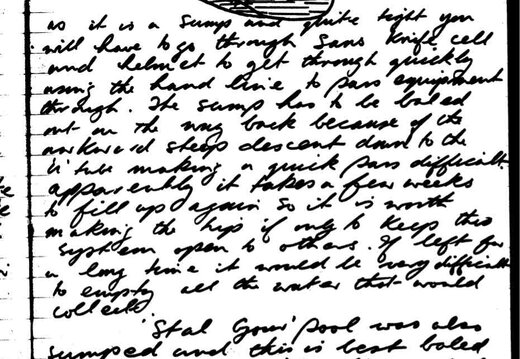 as it is a sump and quite tight you
will have to go through sans knife, cell
and helmet to get through quickly
using the hand line to pass equipment
through. The sump has to be baled
out on the way back because of the
awkward steep descent down to the
'u' tube making a quick pass difficult.
apparently it takes a few weeks
to fill up again so it is worth
making the trip if only to keep this
system open to others. If left for
a long time it would be very difficult
to empty all the water that would
collected
'Stal Gour' pool was also
sumped and this is best baled